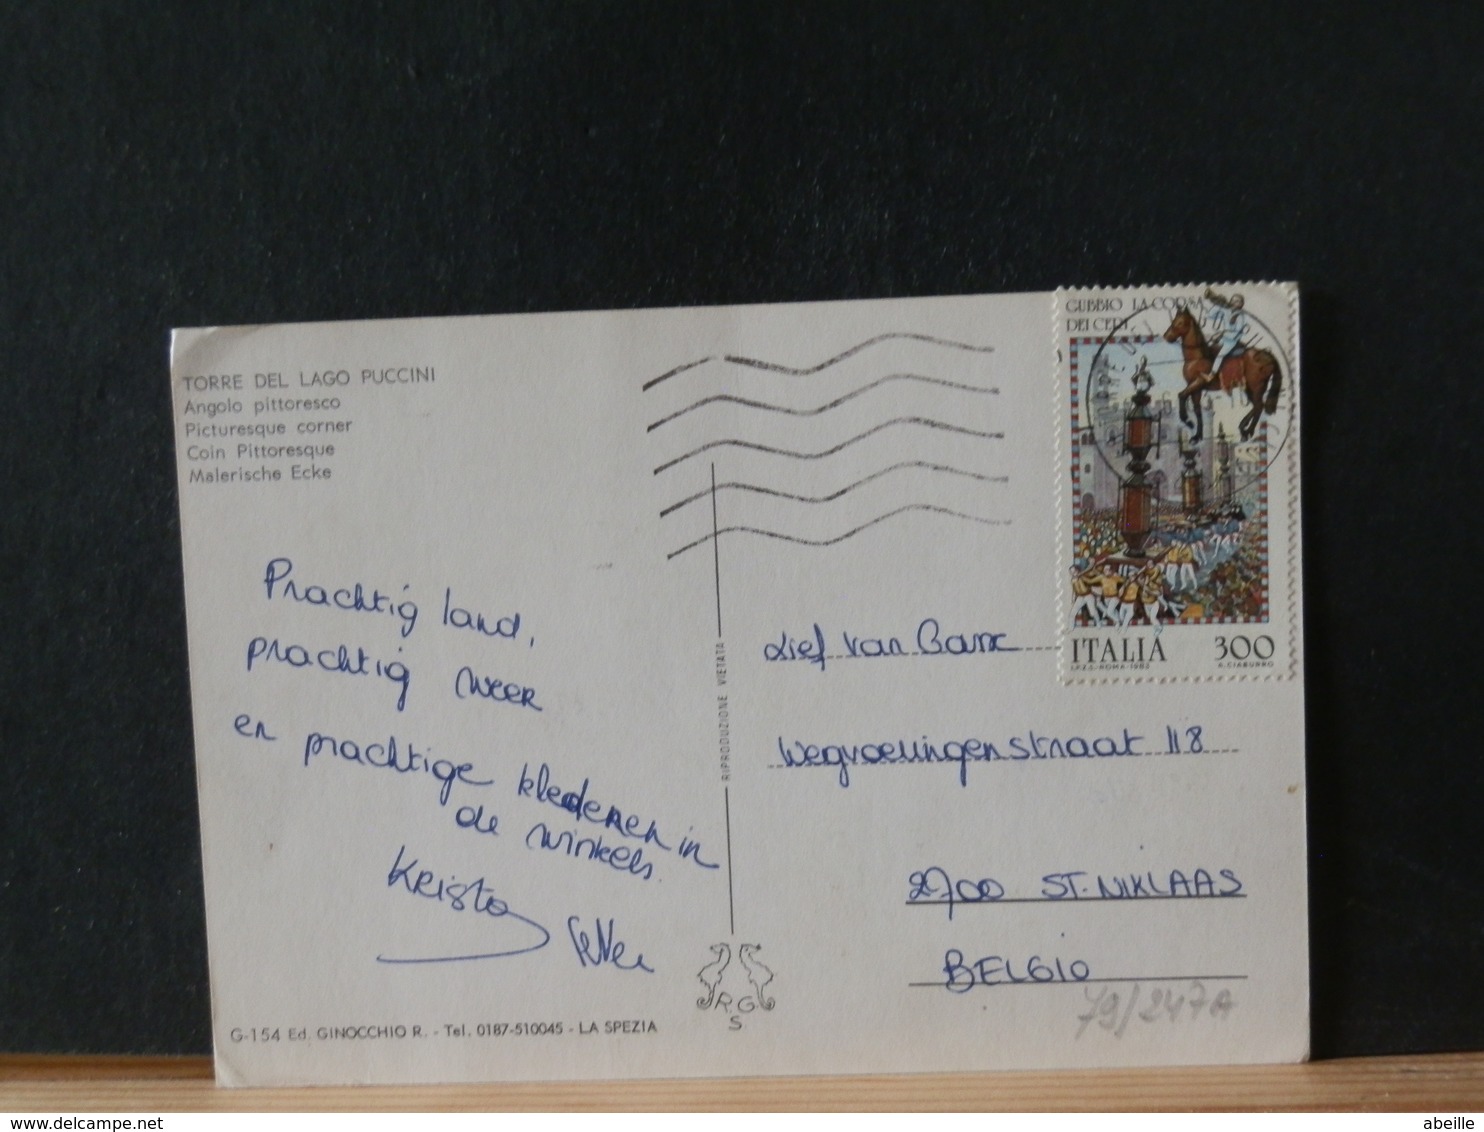 TORRE DEL LAGO PUCCINI
Angolo pittoresco
Picturesque corner
Coin Pittoresque
Malerische Ecke
Prachtig land,
prachtig weer
en prachtige klederen in
de winkels.
Krista
G-154 Ed. GINOCCHIO R. - Tel. 0187-510045 - LA SPEZIA
RIPRODUZIONE VIETATA
R.G
S
GUBBIO LA CORSA
DEI CERI
ITALIA 300
I.P.Z.S.-ROMA-1983 A. CIABURRO
Lief Van
118
2700 ST. NIKLAAS
BELGIO
79/247A
delcampe.net
abeille